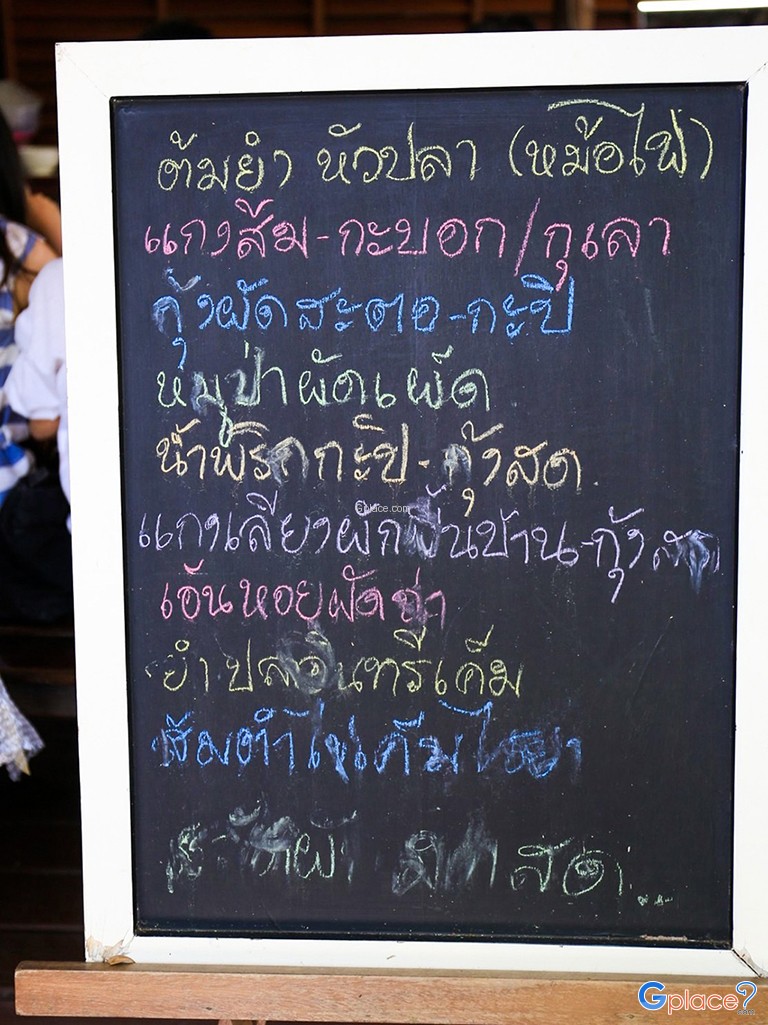 ต้มยำ หัวปลา (หม้อไฟ)
แกงส้ม-กะบอก/กุเลา
กุ้งผัดสะตอ-กะปิ
หมูป่าผัดเผ็ด
น้ำพริกกะปิ-กุ้งสด
Gplace.com
แกงเลียงผักพื้นบ้าน-กุ้งสด
เอ็นหอยผัดฉ่า
ยำปลาอินทรีเค็ม
ส้มตำไข่เค็ม
สด...
Gplace?.com